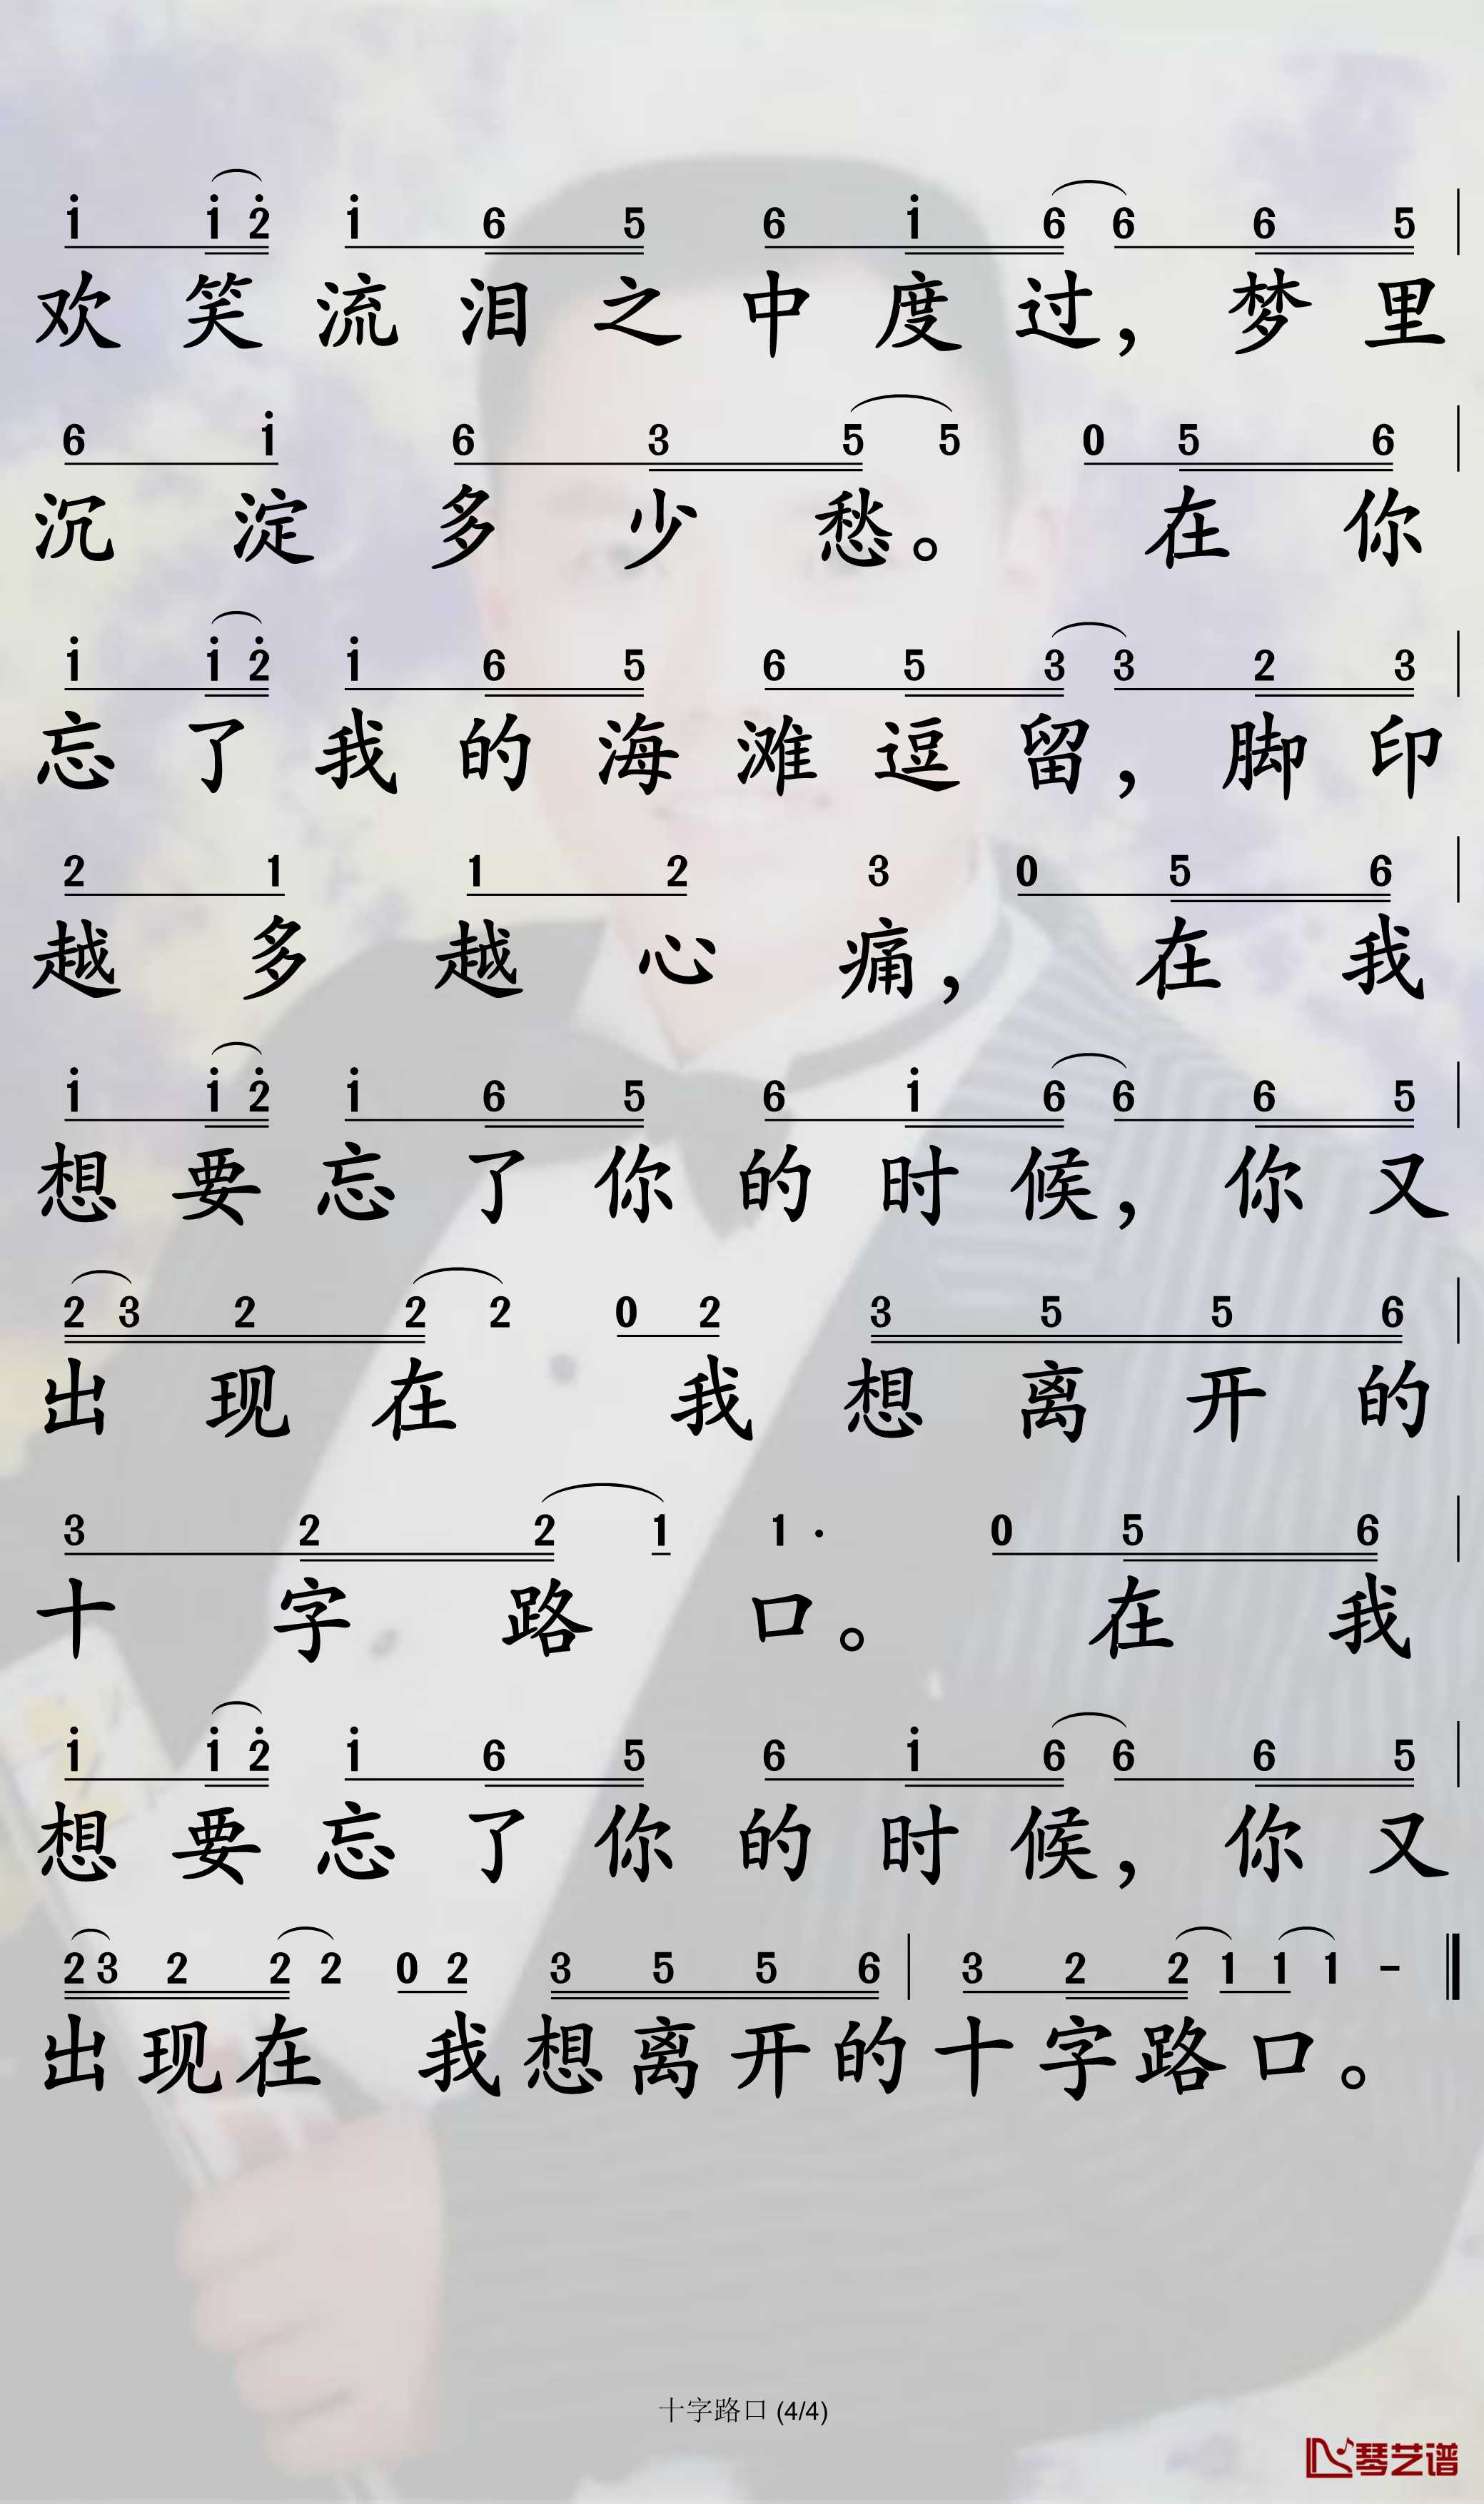 i i 2 i 6 5 6 i 6 6 6 5
欢笑流泪之中度过，梦里
6 i 6 3 5 5 0 5 6
沉淀多少愁。在你
i i 2 i 6 5 6 5 3 3 2 3
忘了我的海滩逗留，脚印
2 1 1 2 3 0 5 6
越多越心痛，在我
i i 2 i 6 5 6 i 6 6 6 5
想要忘了你的时候，你又
2 3 2 2 2 0 2 3 5 5 6
出现在我想离开的
3 2 2 1 1· 0 5 6
十字路口。在我
i i 2 i 6 5 6 i 6 6 6 5
想要忘了你的时候，你又
2 3 2 2 2 0 2 3 5 5 6 3 2 2 1 1 1 -
出现在我想离开的十字路口。
十字路口 (4/4)
琴艺谱